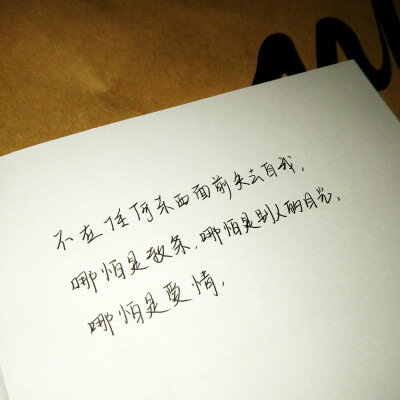 不在任何东西面前失去自我，
哪怕是教条，哪怕是别人的目光，
哪怕是爱情，